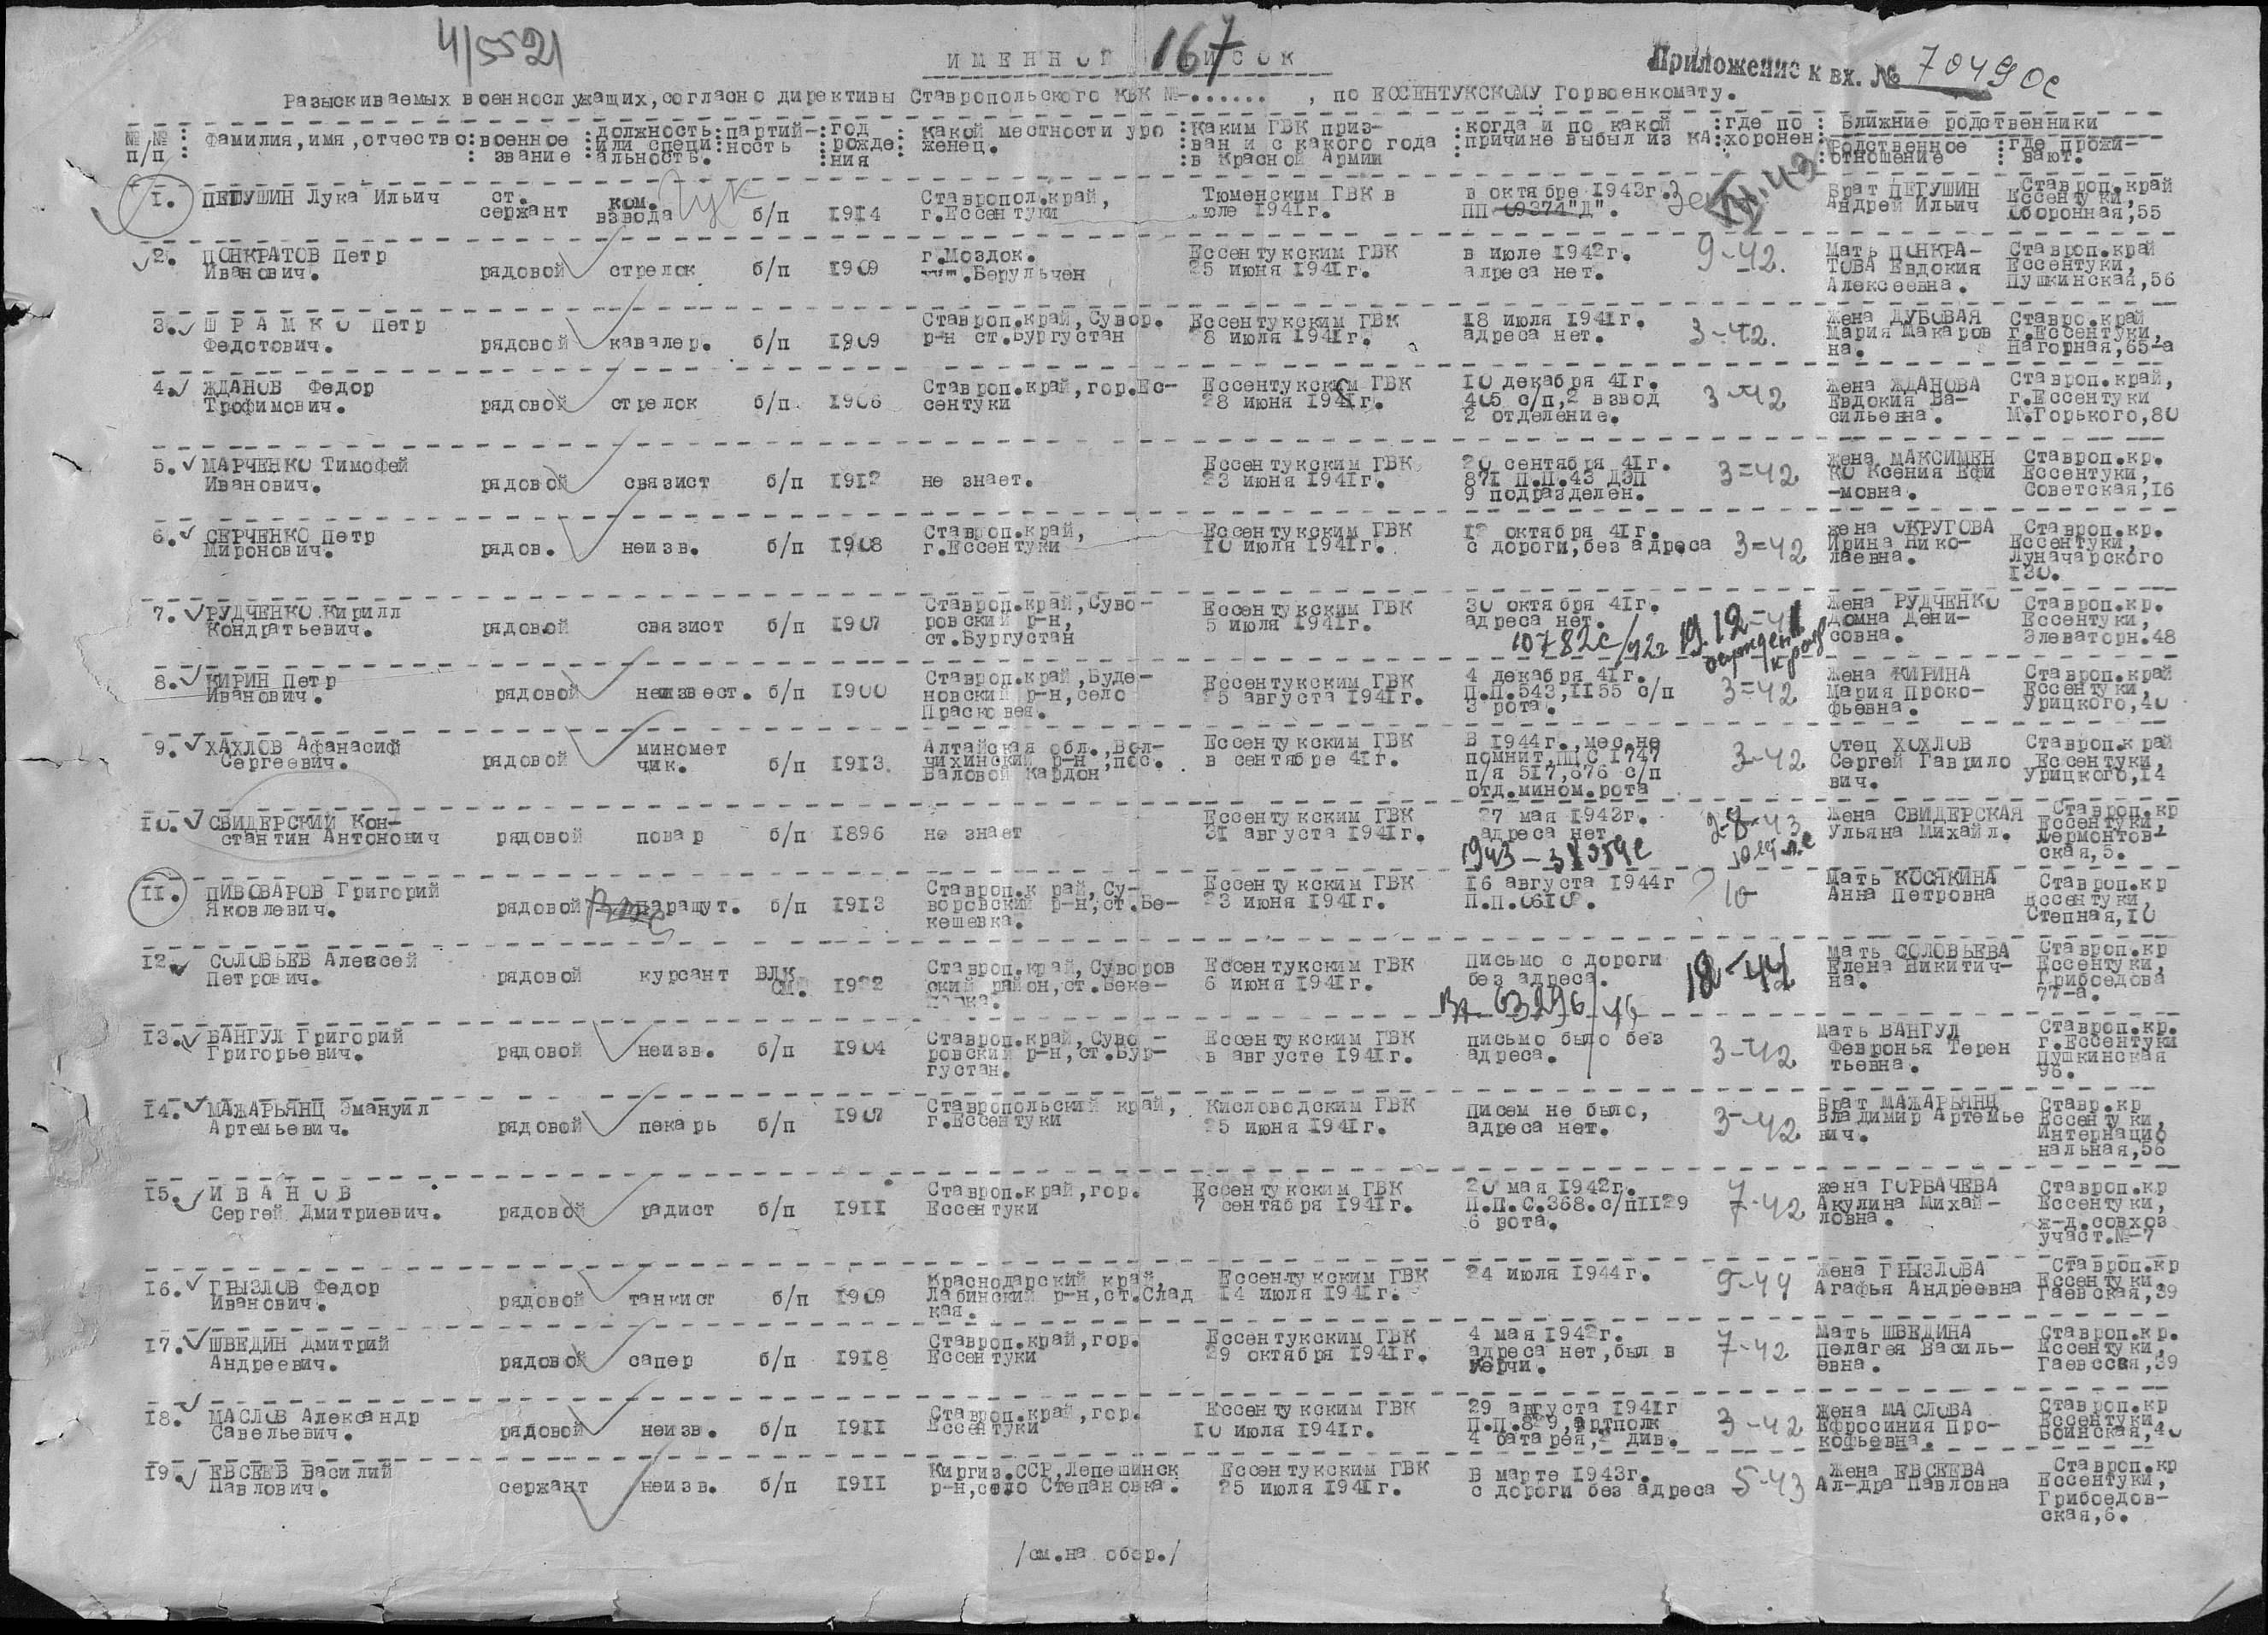 4/5521
ИМЕННОЙ СПИСОК
167
Приложение к вх. № 70490с
Разыскиваемых военнослужащих, согласно директивы Ставропольского КВК №-......, по ЕССЕНТУКСКОМУ Горвоенкомату.
№ № п/п : Фамилия, имя, отчество : военное звание : должность или специальность. : партийность : год рождения : какой местности уроженец. : Каким ГВК призван и с какого года в Красной Армии : когда и по какой причине выбыл из КА : где похоронен : Ближние родственники
Родственное отношение : где проживают.
1. ПЕТУШИН Лука Ильич ст. сержант ком. взвода б/п 1914 Ставропол.край, г.Ессентуки Тюменским ГВК в юле 1941г. в октябре 1943г. ПП 09374"Д". XII.42 Брат ПЕТУШИН Андрей Ильич Ставроп.край Ессентуки, Оборонная,55
2. ПОНКРАТОВ Петр Иванович. рядовой стрелок б/п 1909 г.Моздок. .Берульчен Ессентукским ГВК 25 июня 1941г. в июле 1942г. адреса нет. 9-42. Мать ПОНКРА-ТОВА Евдокия Алексеевна. Ставроп.край Ессентуки, Пушкинская,56
3. ШРАМКО Петр Федотович. рядовой кавалер. б/п 1909 Ставроп.край,Сувор. р-н ст.Бургустан Ессентукским ГВК 8 июля 1941г. 18 июля 1941г. адреса нет. 3-42. Жена ДУБОВАЯ Мария Макаров на. Ставро.край г.Ессентуки, Нагорная,65-а
4. ЖДАНОВ Федор Трофимович. рядовой стрелок б/п. 1906 Ставроп.край,гор.Ес-сентуки Ессентукским ГВК 28 июня 1941г. 10 декабря 41г. 405 с/п,2 взвод 2 отделение. 3-42 Жена ЖДАНОВА Евдокия Ва-сильевна. Ставроп.край, г.Ессентуки М.Горького,80
5. МАРЧЕНКО Тимофей Иванович. рядовой связист б/п 1912 не знает. Ессентукским ГВК 23 июня 1941г. 20 сентября 41г. 871 П.П.43 ДЭП 9 подразделен. 3=42 Жена МАКСИМЕН КО Ксения Ефи -мовна. Ставроп.кр. Ессентуки, Советская,16
6. СЕРЧЕНКО Петр Миронович. рядов. неизв. б/п 1908 Ставроп.край, г.Ессентуки Ессентукским ГВК 10 июля 1941г. 12 октября 41г. с дороги,без адреса 3=42 жена ОКРУГОВА Ирина Нико-лаевна. Ставроп.кр. Ессентуки, Луначарского 130.
7. РУДЧЕНКО Кирилл Кондратьевич. рядовой связист б/п 1907 Ставроп.край,Суво-ровский р-н, ст.Бургустан Ессентукским ГВК 5 июля 1941г. 30 октября 41г. адреса нет. 10782с/42г 19.12-41 Жена РУДЧЕНКО Домна Дени-совна. Ставроп.кр. Ессентуки, Элеваторн.48
8. КИРИН Петр Иванович. рядовой неизвест. б/п 1900 Ставроп.край,Буде-новский р-н,село Прасковея. Ессентукским ГВК 25 августа 1941г. 4 декабря 41г. П.П.543,1155 с/п 3 рота. 3=42 Жена КИРИНА Мария Проко-фьевна. Ставроп.край Ессентуки, Урицкого,40
9. ХАХЛОВ Афанасий Сергеевич. рядовой миномет чик. б/п 1913. Алтайская обл.,Вол-чихинский р-н,пос. Валовой Кардон Ессентукским ГВК в сентябре 41г. В 1944г.,мес.не помнит,ППС 1747 п/я 517,676 с/п отд.мином.рота 3-42 Отец ХОХЛОВ Сергей Гаврило вич. Ставроп.край Ессентуки, Урицкого,14
10. СВИДЕРСКИЙ Кон-стантин Антонович рядовой повар б/п 1896 не знает Ессентукским ГВК 31 августа 1941г. 27 мая 1943г. адреса нет. 8-43 Жена СВИДЕРСКАЯ Ульяна Михайл. Ставроп.кр Ессентуки, Лермонтов-ская,5.
11. ПИВОВАРОВ Григорий Яковлевич. рядовой парашут. б/п 1913 Ставроп.край,Су-воровский р-н,ст.Бе-кешевка. Ессентукским ГВК 23 июня 1941г. 16 августа 1944г П.П.06102. 10- Мать КОСЯКИНА Анна Петровна Ставроп.кр Ессентуки, Степная,10
12. СОЛОВЬЕВ Алексей Петрович. рядовой курсант ВЛК СМ. 1922 Ставроп.край,Суворов ский район,ст.Беке- Ессентукским ГВК 6 июня 1941г. Письмо с дороги без адреса. 12-44 Мать СОЛОВЬЕВА Елена Никитич-на. Ставроп.кр Ессентуки, Грибоедова 77-а.
13. ВАНГУЛ Григорий Григорьевич. рядовой неизв. б/п 1904 Ставроп.край,Суво-ровский р-н,ст.Бур-густан. Ессентукским ГВК в августе 1941г. письмо было без адреса. 3-42 Мать ВАНГУЛ Февронья Терен тьевна. Ставроп.кр. г.Ессентуки Пушкинская 96.
14. МАЖАРЬЯНЦ Эмануил Артемьевич. рядовой пекарь б/п 1907 Ставропольский край, г.Ессентуки Кисловодским ГВК 25 июня 1941г. Писем не было, адреса нет. 3-42 Брат МАЖАРЬЯНЦ Владимир Артемье вич. Ставр.кр Ессентуки, Интернацио нальная,56
15. ИВАНОВ Сергей Дмитриевич. рядовой радист б/п 1911 Ставроп.край,гор. Ессентуки Ессентукским ГВК 7 сентября 1941г. 20 мая 1942г. П.П.С.368.с/п1129 6 рота. 7-42 жена ГОРБАЧЕВА Акулина Михай-ловна. Ставроп.кр Ессентуки, ж-д.совхоз участ.№-7
16. ГРЫЗЛОВ Федор Иванович. рядовой танкист б/п 1909 Краснодарский край, Лабинский р-н,ст.Слад кая. Ессентукским ГВК 14 июля 1941г. 24 июля 1944г. 9-44 Жена ГРЫЗЛОВА Агафья Андреевна Ставроп.кр Ессентуки, Гаевская,39
17. ШВЕДИН Дмитрий Андреевич. рядовой сапер б/п 1918 Ставроп.край,гор. Ессентуки Ессентукским ГВК 29 октября 1941г. 4 мая 1942г. адреса нет,был в Керчи. 7-42 Мать ШВЕДИНА Пелагея Василь-евна. Ставроп.кр. Ессентуки, Гаевсся,39
18. МАСЛОВ Александр Савельевич. рядовой неизв. б/п 1911 Ставроп.край,гор. Ессентуки Ессентукским ГВК 10 июля 1941г. 29 августа 1941г П.П.829,артполк 4 батарея,2 див. 3-42 Жена МАСЛОВА Ефросиния Про-кофьевна. Ставроп.кр Ессентуки, Воинская,40
19. ЕВСЕЕВ Василий Павлович. сержант неизв. б/п 1911 Киргиз.ССР,Лепешинск р-н,село Степановка. Ессентукским ГВК 25 июля 1941г. В марте 1943г. с дороги без адреса 5-43 Жена ЕВСЕЕВА Ал-дра Павловна Ставроп.кр Ессентуки, Грибоедов-ская,6.
/см.на обор./